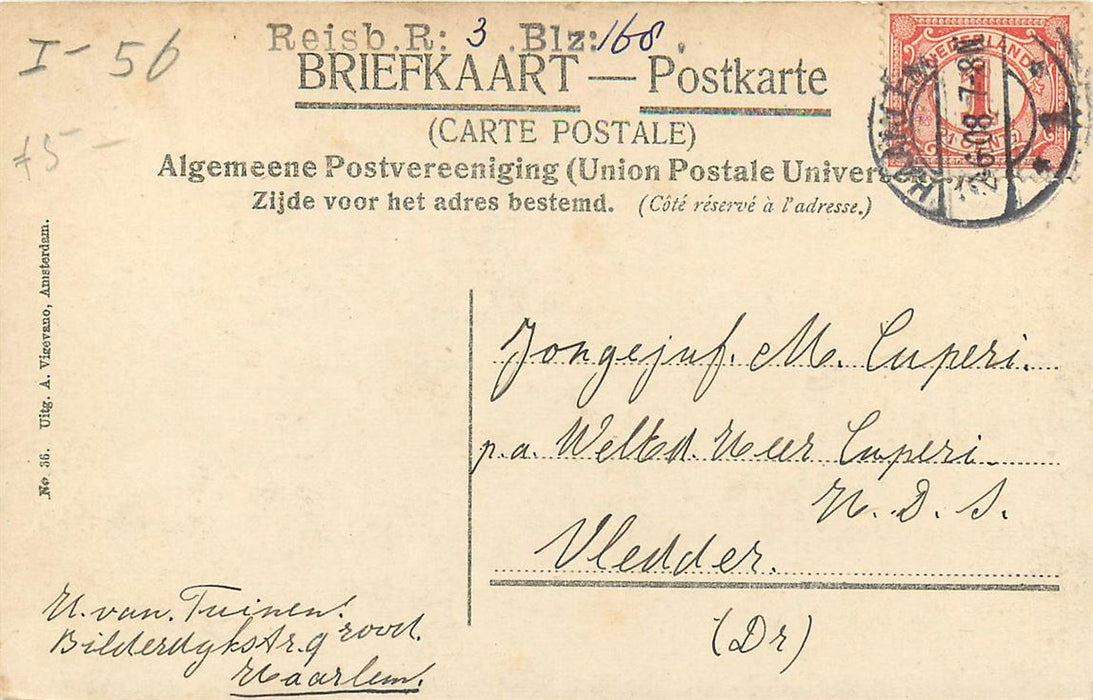 I - 56
Reisb.R: 3 .Blz: 168.
BRIEFKAART — Postkarte
(CARTE POSTALE)
Algemeene Postvereeniging (Union Postale Univer
Zijde voor het adres bestemd. (Côté réservé à l'adresse.)
NEDERLAND
1
1 CENT
HAARLEM
2.6.08 7-8N
1
75 -
No. 36. Uitg. A. Vigevano, Amsterdam.
Jongejuf. M. Cuperi.
p.a. WelEd. Heer Cuperi.
N. D. S.
Vledder.
(Dr)
H. van Tuinen.
Bilderdykstr. 9 rood.
Haarlem.